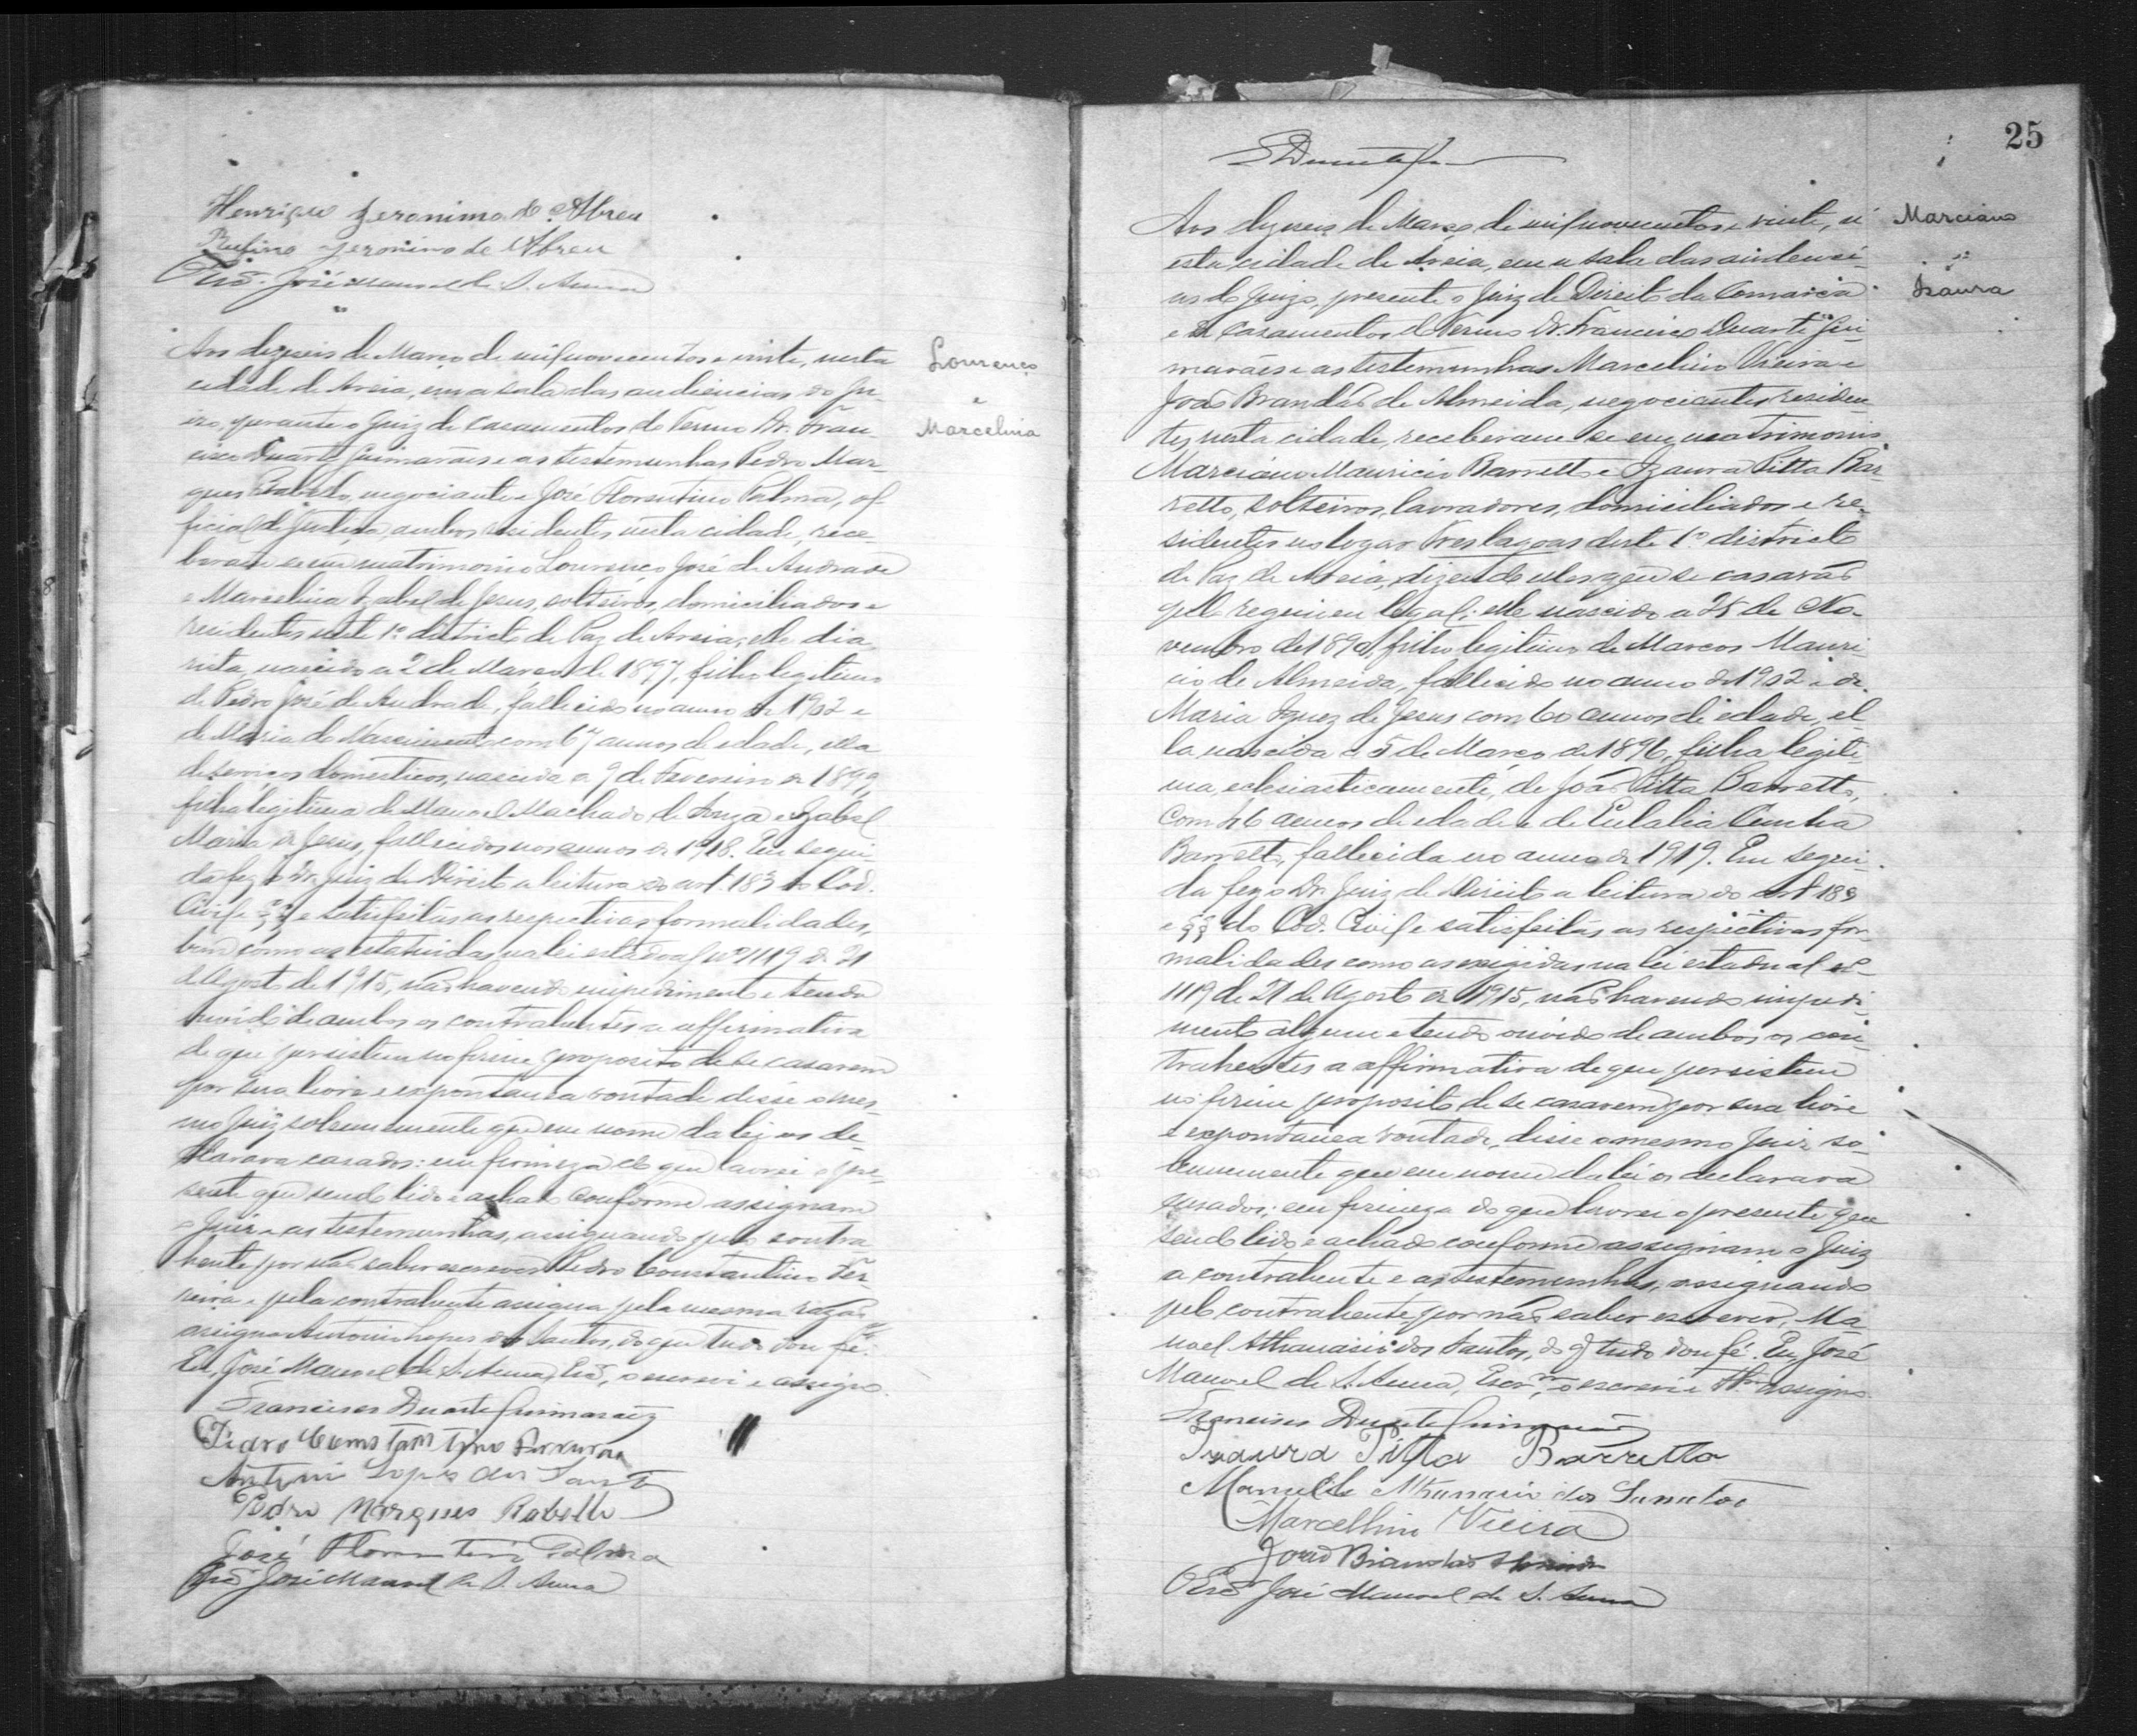 Henrique Jeronimo de Abreu
Rufino Jeronimo de Abreu
José Manoel de S. Anna
Lourenço
e
Marcelina
Aos dezeseis de Março de mil novecentos e vinte, nesta
cidade de Areia, em a sala das audiencias do Ju-
izo, perante o Juiz de Casamentos do Termo Dr. Fran-
cisco Duarte Guimarães e as testemunhas Pedro Mar-
ques Rabello, negociante e José Florentino Palma, of-
ficial de Justiça, ambos residentes nesta cidade, rece-
beram se em matrimonio Lourenço José de Andrade
e Marcelina Izabel de Jesus, solteiros, domiciliados e
residentes neste 1º districto de Paz de Areia, elle dia-
rista, nascido a 2 de Março de 1897, filho legitimo
de Pedro José de Andrade, fallecido no anno de 1902 e
de Maria do Nascimento com 67 annos de edade, ella
de serviços domesticos, nascida a 9 de Fevereiro de 1899,
filha legitima de Manoel Machado de Souza e Izabel
Maria de Jesus, fallecidos nos annos de 1918. Em segui-
da fez o Dr. Juiz de Direito a leitura do art. 183 do Cod.
Civil e §§ e satisfeitas as respectivas formalidades,
bem como as estatuidas na lei estadoal nº 1119 de 21
de Agosto de 1915, não havendo impedimento e tendo
ouvido de ambos os contrahentes a affirmativa
de que persistem no firme proposito de se casarem
por sua livre e expontanea vontade disse o mes-
mo Juiz solemnemente que em nome da lei os de-
clarava casados: em firmeza do que lavrei o pre-
sente que sendo lido e achado conforme assignam
o Juiz e as testemunhas, assignando pelo contra-
hente por não saber escrever Pedro Constantino Fer-
reira e pela contrahente assigna pela mesma razão
assigna Antonio Lopes dos Santos, do que tudo dou fé.
Eu, José Manoel de S. Anna, Esc., o escrevi e assigno.
Francisco Duarte Guimarães
Pedro Constantino Ferreira
Antonio Lopes dos Santos
Pedro Marques Rabello
José Florentino Palma
José Manoel de S. Anna
25
Marciano
e
Izaura
Aos dezeseis de Março de mil novecentos e vinte, n'
esta cidade de Areia, em a sala das audienci-
as do Juizo, presente o Juiz de Direito da Comarca
e de Casamentos do Termo Dr. Francisco Duarte Gui-
marães e as testemunhas Marcelino Vieira e
João Brandão de Almeida, negociantes residen-
tes nesta cidade, receberam se em matrimonio
Marciano Mauricio Barretto e Izaura Pitta Bar-
retto, solteiros, lavradores, domiciliados e re-
sidentes no logar Tres lagoas deste 1º districto
de Paz de Areia, dizendo elles que se casarão
pelo regimen legal: elle nascido a 25 de No-
vembro de 1890, filho legitimo de Marcos Mauri-
cio de Almeida, fallecido no anno de 1902 e de
Maria Ignez de Jesus com 60 annos de edade, el-
la nascida a 5 de Março de 1896, filha legiti-
ma, eclesiasticamente, de João Pitta Barretto,
com 46 annos de edade e de Eulalia Cunha
Barretto, fallecida no anno de 1919. Em segui-
da fez o Dr. Juiz de Direito a leitura do art 183
e §§ do Cod. Civil e satisfeitas as respectivas for-
malidades como as exigidas na lei estadual nº
1119 de 21 de Agosto de 1915, não havendo impedi-
mento algum e tendo ouvido de ambos os con-
trahentes a affirmativa de que persistem
no firme proposito de se casarem por sua livre
e expontanea vontade, disse o mesmo Juiz so-
lemnemente que em nome da lei os declarava
casados; em firmeza do que lavrei o presente que
sendo lido e achado conforme assignam o Juiz
a contrahente e as testemunhas, assignando
pelo contrahente, por não saber escrever, Ma-
noel Athanasio dos Santos, do q tudo dou fé. Eu José
Manoel de S. Anna, Escr.m, o escrevi e assigno.
Francisco Duarte Guimarães
Izaura Pitta Barretto
Manoel Athanasio dos Santos
Marcellino Vieira
João Brandão Almeida
José Manoel de S. Anna